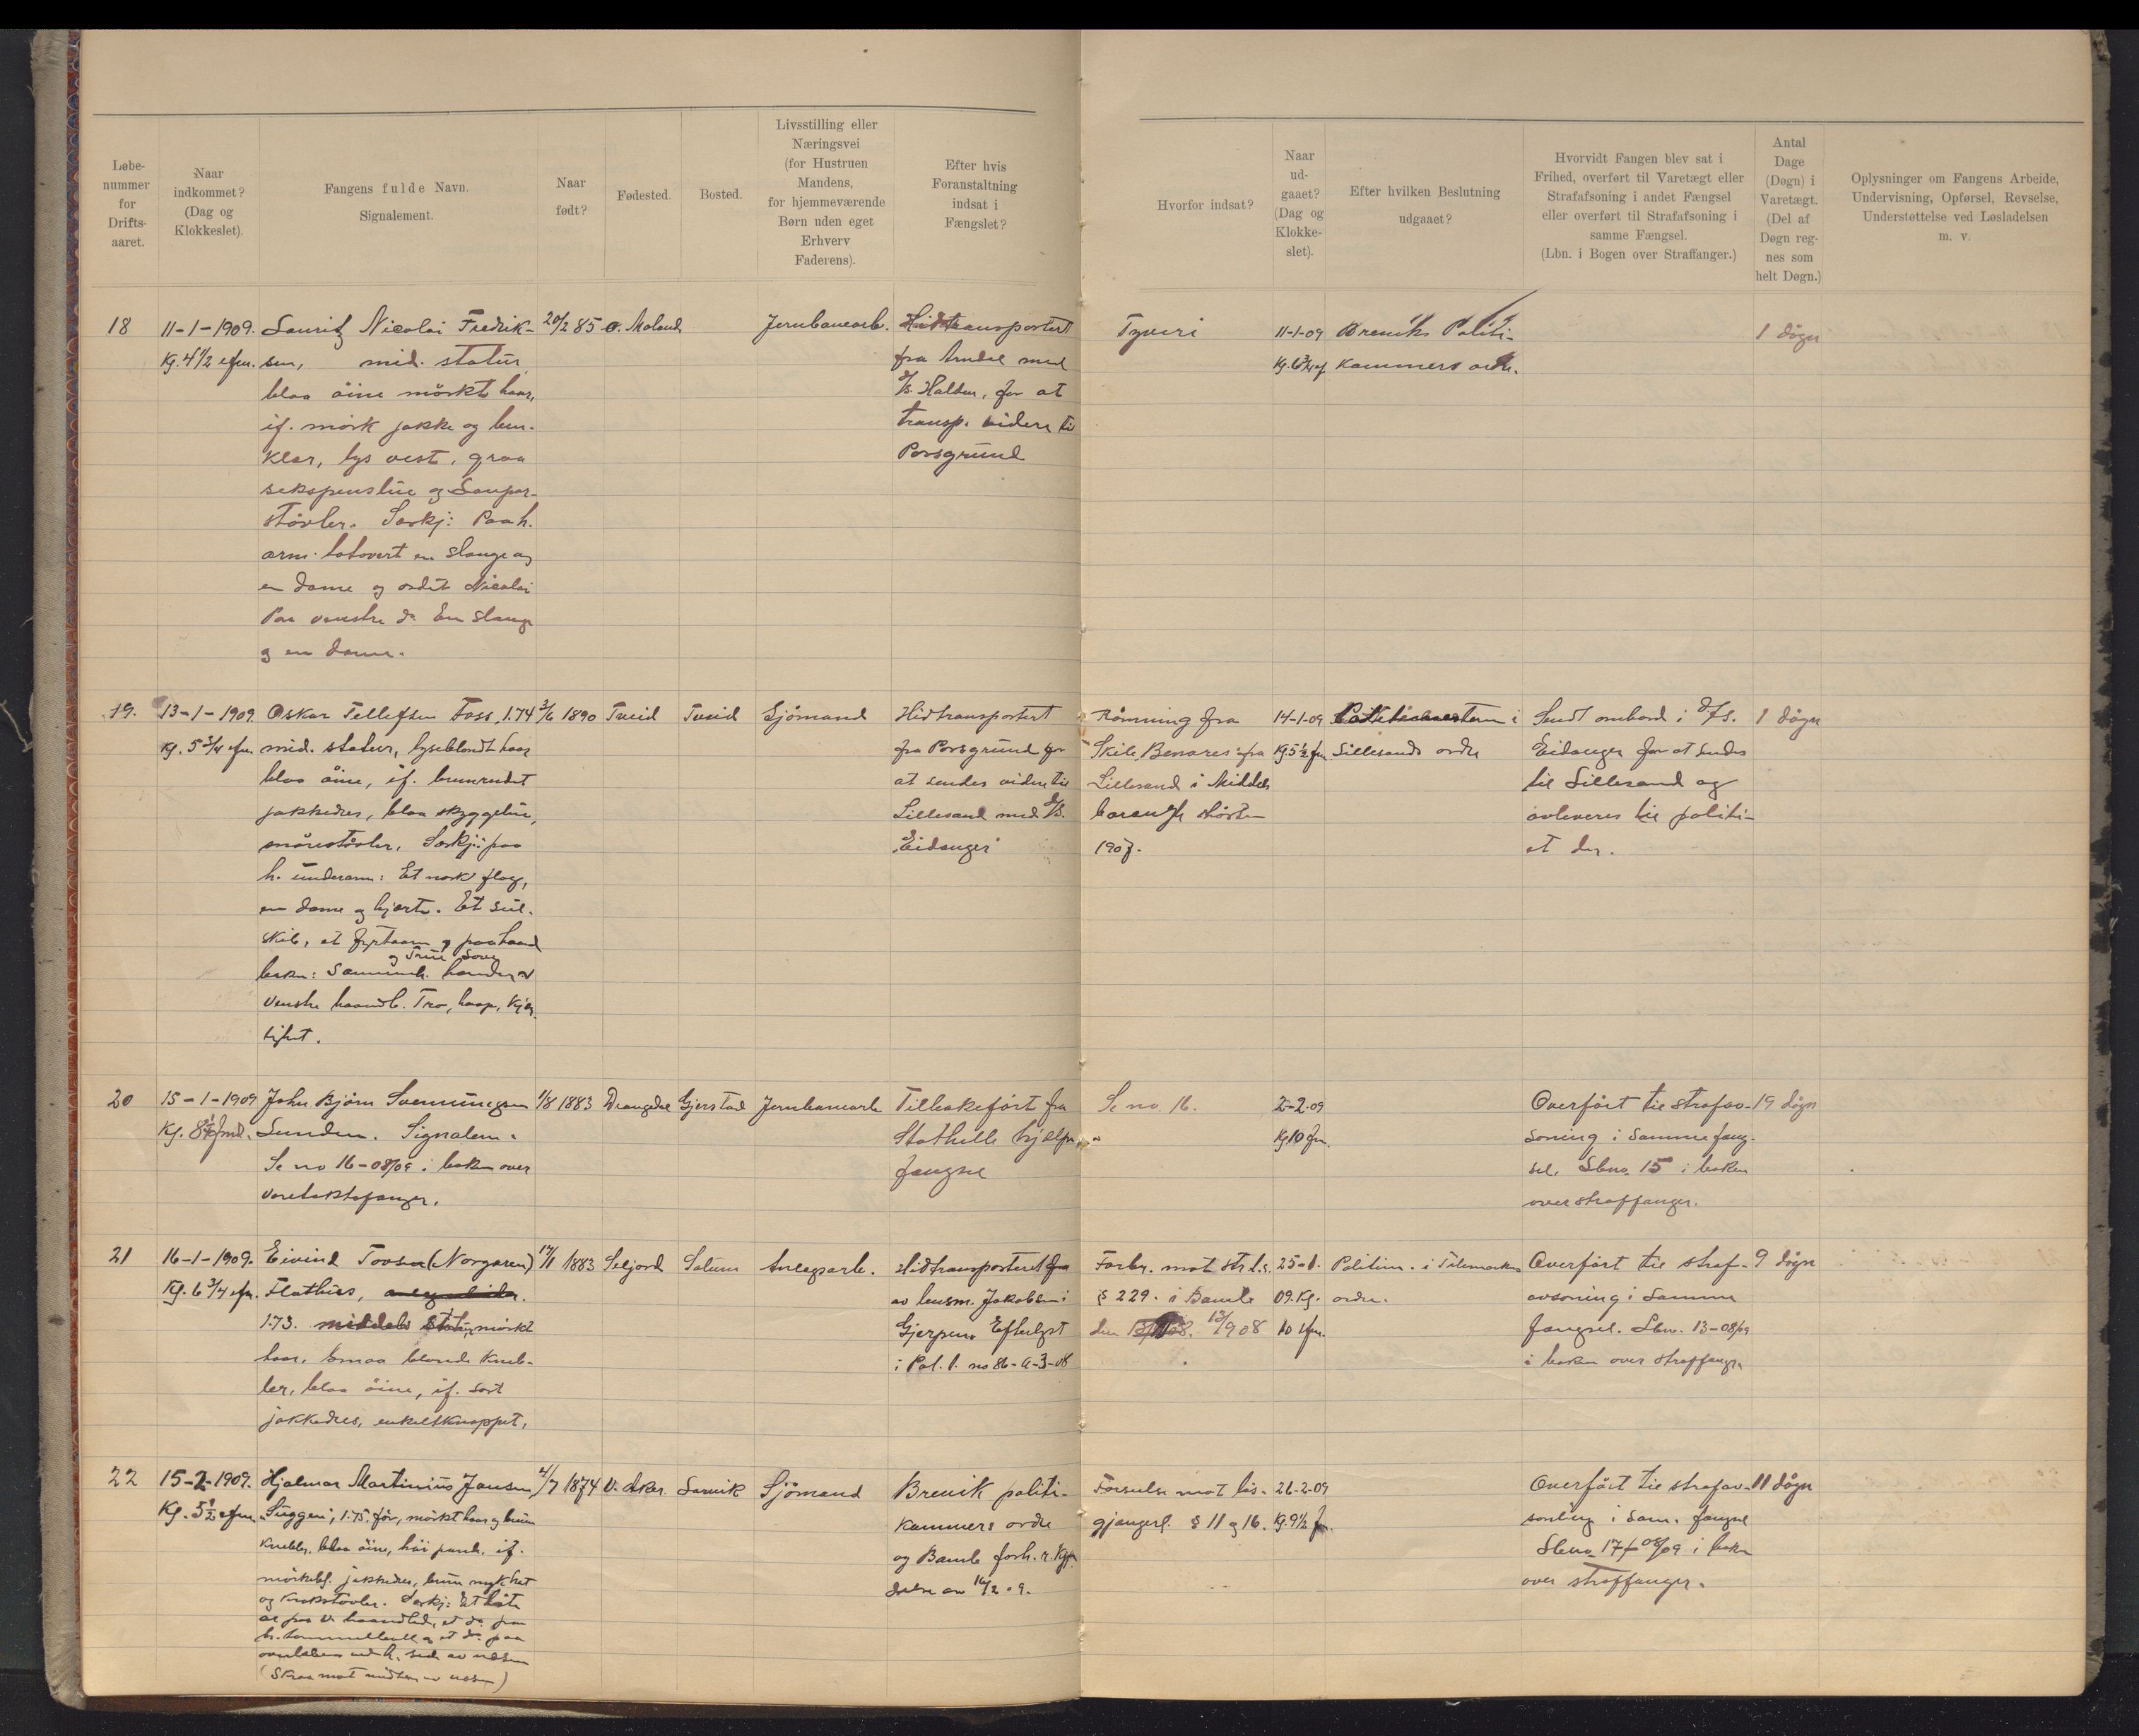 Løbe-
nummer
for
Drifts-
aaret.
Naar
indkommet?
(Dag og
Klokkeslet).
Fangens fulde Navn.
Signalement.
Naar
født?
Fødested.
Bosted.
Livsstilling eller
Næringsvei
(for Hustruen
Mandens,
for hjemmeværende
Børn uden eget
Erhverv
Faderens).
Efter hvis
Foranstaltning
indsat i
Fængslet?
Hvorfor indsat?
Naar
ud-
gaaet?
(Dag og
Klokke-
slet).
Efter hvilken Beslutning
udgaaet?
Hvorvidt Fangen blev sat i
Frihed, overført til Varetægt eller
Strafafsoning i andet Fængsel
eller overført til Strafafsoning i
samme Fængsel.
(Lbn. i Bogen over Straffanger.)
Antal
Dage
(Døgn) i
Varetægt.
(Del af
Døgn reg-
nes som
helt Døgn.)
Oplysninger om Fangens Arbeide,
Undervisning, Opførsel, Revselse,
Understøttelse ved Løsladelsen
m. v.
18
11-1-1909.
Kg. 4 1/2 efm.
Lauritz Nicolai Fredrik-
sen, mid. statur
blaa öine mörkt haar,
if. mörk jakke og ben-
klær, lys vest, graa
sekspenslue og
stövler. Særkj: Paa h.
arm tatovert en slange og
en dame og ordet Nicolai
Paa venstre do En slange
og en dame.
20/2 85
ö. Moland
Jernbanearb.
Hidtransportert
fra Arndal med
D/S. Halden, for at
transp. videre til
Porsgrund
Tyveri
11-1-09
Kg. 6 3/4 ef
Breviks Politi-
kammers ordre.
1 dögn
19.
13-1-1909.
Kg. 5 3/4 efm
Oskar Tellefsen Foss, 1.74
mid. statur, lyseblondt haar
blaa öine, if. brunrudet
jakkedres, blaa skyggelue,
snörestövler. Særkj: paa
h. underarm: Et norsk flag,
en dame og hjerte. Et seil-
skib, et fyrtaarn og paa haand
og True Love
baken: Sammenl. hænder
Venstre haandl. Tro, haap, kjær-
lighet.
3/6 1890
Tveid
Tveid
Sjömand
Hidtransportert
fra Porsgrund for
at sendes videre til
Lillesand med D/S.
"Eidanger"
Römning fra
Skib "Benares" fra
Lillesand i Middels-
hösten
1907.
14-1-09
Kg 5 1/2 fm
i
Lillesands ordre
Sendt ombord i D/S.
Eidanger for at sendes
til Lillesand og
avleveres til politi-
et der.
1 dögn
20
15-1-1909
Kg. 8 1/2 fmd.
John Björn Svenningsen
Lunden. Signalem.
Se no 16-08/09 i boken over
varetektsfanger.
1/8 1883
Drangdal
Gjerstad
Jernbanearb
Tilbakefört fra
Stathelle hjælpe-
fængsel
Se no. 16.
2-2-09
Kg. 10 fm.
Overfört til strafav-
soning i samme fæng-
sel. Lbno. 15 i boken
over straffanger.
19 dögn
21
16-1-1909.
Kg. 6 3/4 efm.
Eivind Tovsen (Norgaren)
Flathus,
1.73. middels statur, mörkt
haar, smaa blonde kneb-
ler, blaa öine, if. sort
jakkedres, enkeltknappet.
17/1 1883
Seljord
Solum
Anlegsarb.
Hidtransportert fra
av lensm. Jakobsen i
Gjerpen. Efterlyst
i Pol. t. no 86-a-3-08
Forbr. mot str.l.s
§ 229. i Bamle
den 13/1908
25-1-
09. Kg.
10 efm.
Politim. i Telemarkens
ordre.
Overfört til straf-
avsoning i samme
fængsel. Lbno. 13-08/09
i boken over straffanger
9 dögn
22
15-2-1909.
Kg. 5 1/2 efm.
Hjalmar Martinius Jansen
"Suggen", 1.75, för, mörkt haar og brun
knebler, blaa öine, höi pande, if.
mörkebl. jakkedres, brun myk hat
og krokstövler. Særkj: Et lite
ar paa v. haandled, et do paa
h. tommelbull og et do paa
overlæben ved h. side av næsen
(Skraa mot midten av næsen)
4/7 1874
V. Aker
Larvik
Sjömand
Brevik politi-
kammers ordre
og Bamle forh. r. kjen-
delse av 16/2 09.
Forseelse mot lös-
gjængerl. § 11 og 16.
26-2-09
Kg. 9 1/2 fm.
Overfört til strafav-
soning i sam. fængsel
Lbno. 17 - 08/09 i boken
over straffanger.
11 dögn